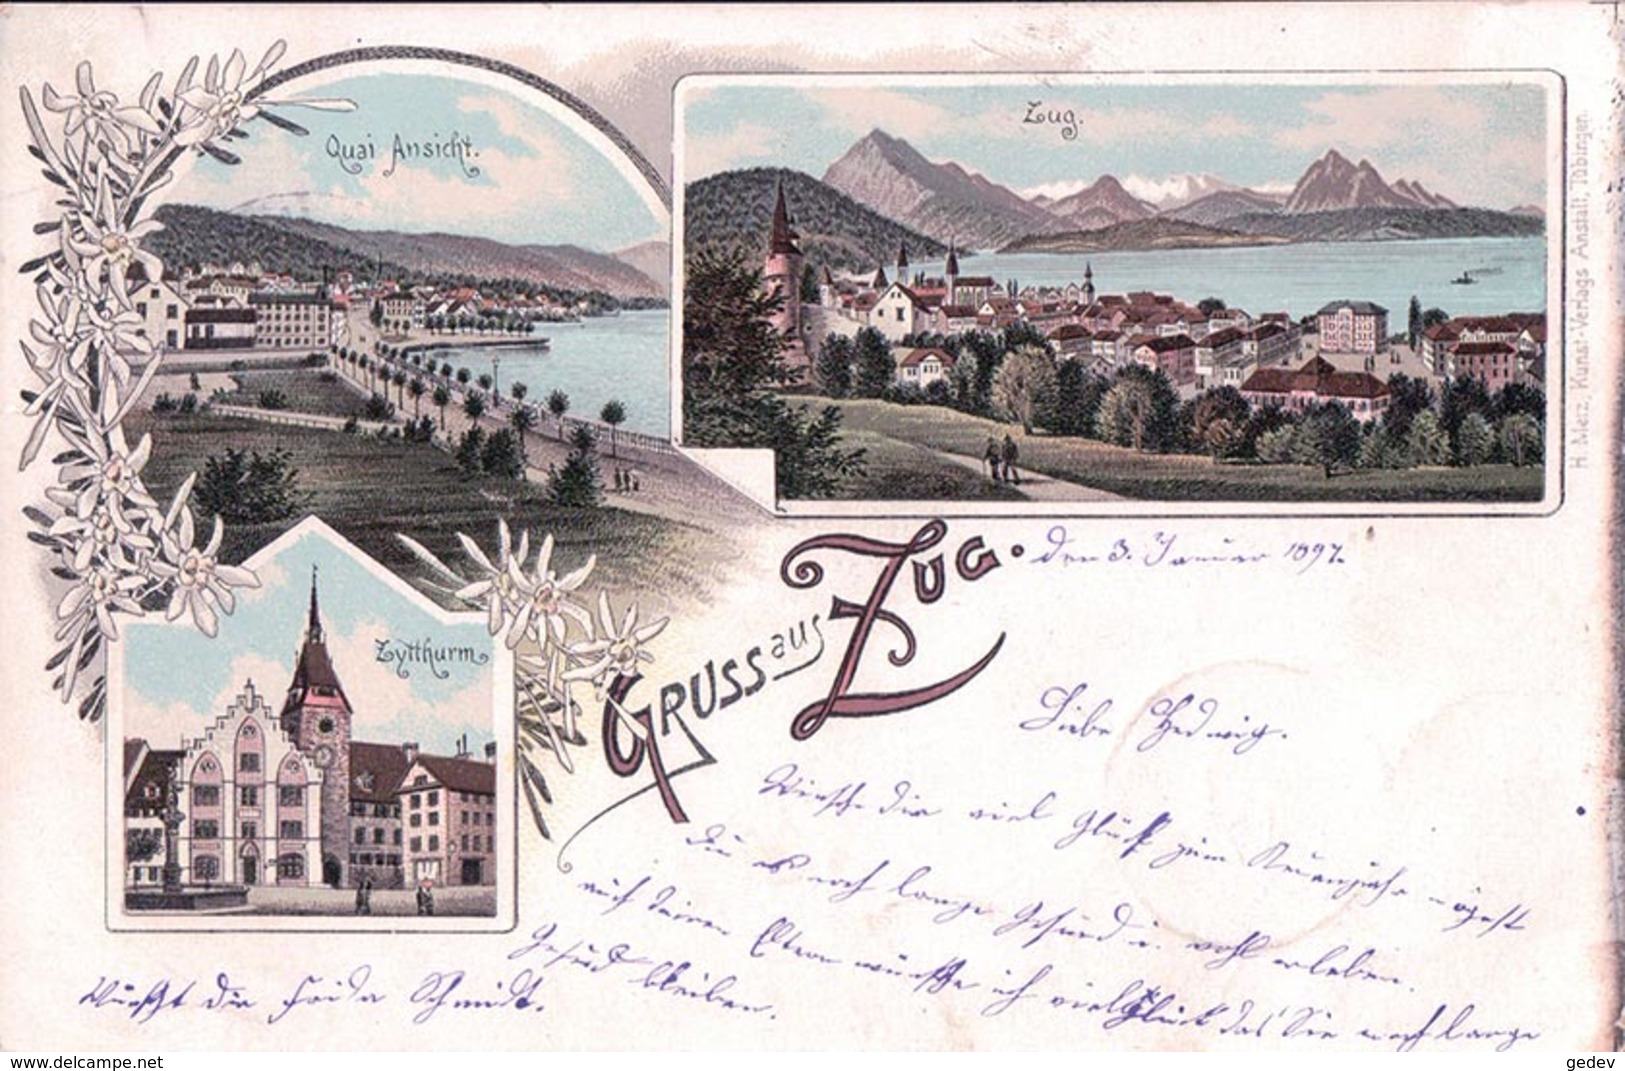 Quai Ansicht.
Zug.
Zytthurm
H. Metz, Kunst-Verlags-Anstalt, Tübingen.
GRUSS aus ZUG.
den 3. Januar 1897.
Liebe Hedwig.
Wünsche dir viel Glück zum Neuenjahr mögest
Du es noch lange Gesund u. wohl erleben.
auch deinen Eltern wünsche ich viel Glück das Sie noch lange
Gesund bleiben.
Wünscht dir Frida Schmidt.
gedev
delcampe.net